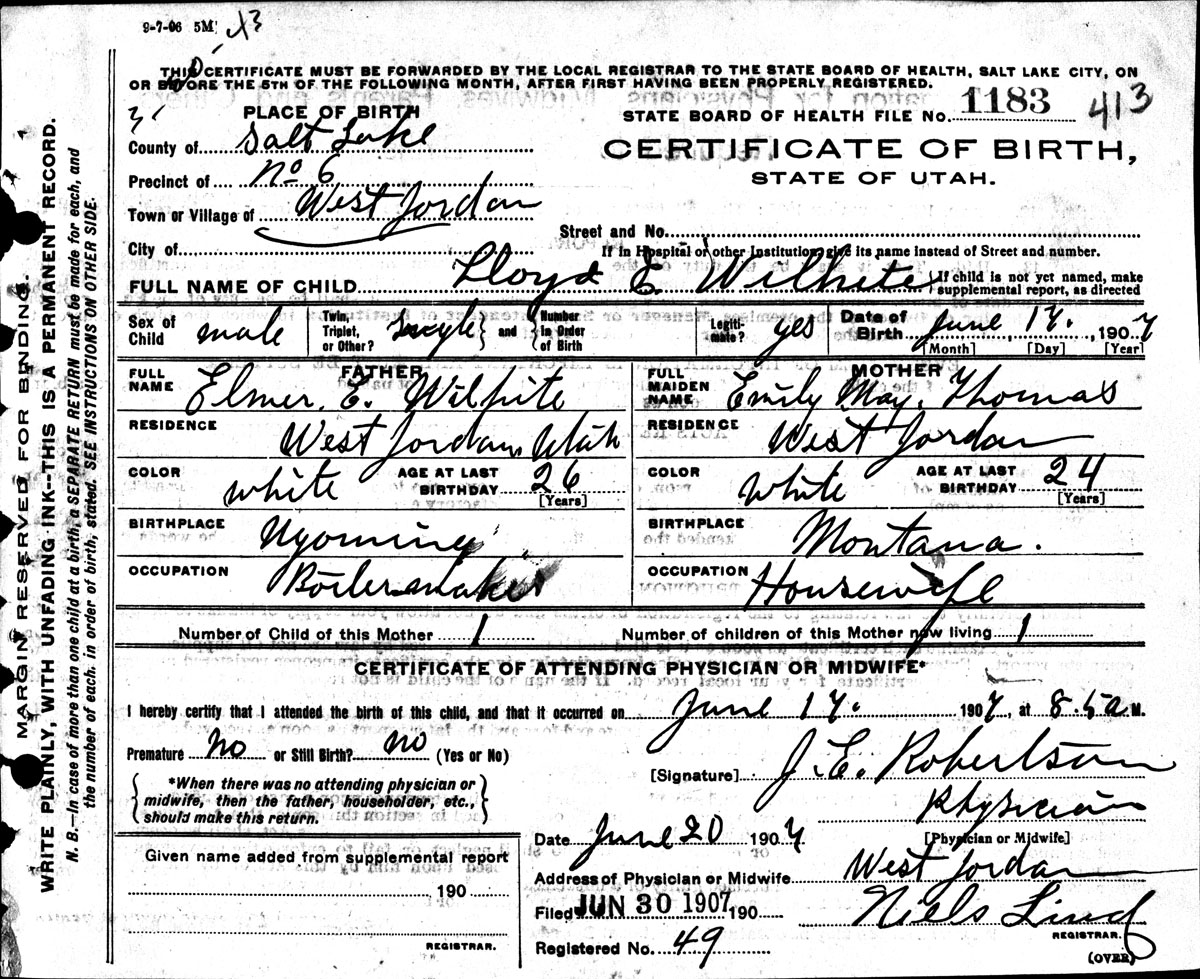 9-7-06 5M
THIS CERTIFICATE MUST BE FORWARDED BY THE LOCAL REGISTRAR TO THE STATE BOARD OF HEALTH, SALT LAKE CITY, ON
OR BEFORE THE 5TH OF THE FOLLOWING MONTH, AFTER FIRST HAVING BEEN PROPERLY REGISTERED.
PLACE OF BIRTH
STATE BOARD OF HEALTH FILE No. 1183 413
County of Salt Lake
CERTIFICATE OF BIRTH,
STATE OF UTAH.
Precinct of No 6
Town or Village of West Jordan
Street and No.
City of
If in Hospital or other Institution give its name instead of Street and number.
FULL NAME OF CHILD Lloyd E. Wilhite
If child is not yet named, make
supplemental report, as directed
Sex of Child male Twin, Triplet, or Other? Single and Number in Order of Birth Legiti-mate? yes Date of Birth June 17. 1907
[Month] [Day] [Year]
FATHER
FULL NAME Elmer. E. Wilhite
RESIDENCE West Jordan, Utah
COLOR white AGE AT LAST BIRTHDAY 26
[Years]
BIRTHPLACE Wyoming
OCCUPATION Boilermaker
MOTHER
FULL MAIDEN NAME Emily May. Thomas
RESIDENCE West Jordan
COLOR White AGE AT LAST BIRTHDAY 24
[Years]
BIRTHPLACE Montana.
OCCUPATION Housewife
Number of Child of this Mother 1 Number of children of this Mother now living 1
CERTIFICATE OF ATTENDING PHYSICIAN OR MIDWIFE*
I hereby certify that I attended the birth of this child, and that it occurred on June 17. 1907, at 8.5 a M.
Premature No or Still Birth? no (Yes or No)
[Signature] J. E. Robertson
*When there was no attending physician or
midwife, then the father, householder, etc.,
should make this return.
Physician
[Physician or Midwife]
Date June 20 1907
Given name added from supplemental report
190
REGISTRAR.
Address of Physician or Midwife West Jordan
Filed JUN 30 1907 190 Niels Lind
REGISTRAR.
Registered No. 49
(OVER)
MARGIN RESERVED FOR BINDING.
WRITE PLAINLY, WITH UNFADING INK--THIS IS A PERMANENT RECORD.
N. B.—In case of more than one child at a birth, a SEPARATE RETURN must be made for each, and
the number of each, in order of birth, stated. SEE INSTRUCTIONS ON OTHER SIDE.